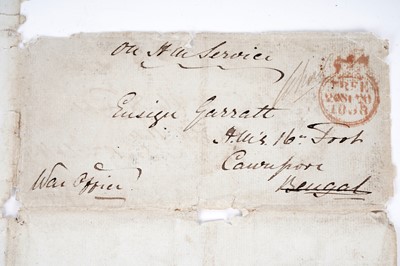 On H M Service
FREE
1838
Ensign Garratt
H.M's. 16th Foot
Cawnpore
War Office
Bengal